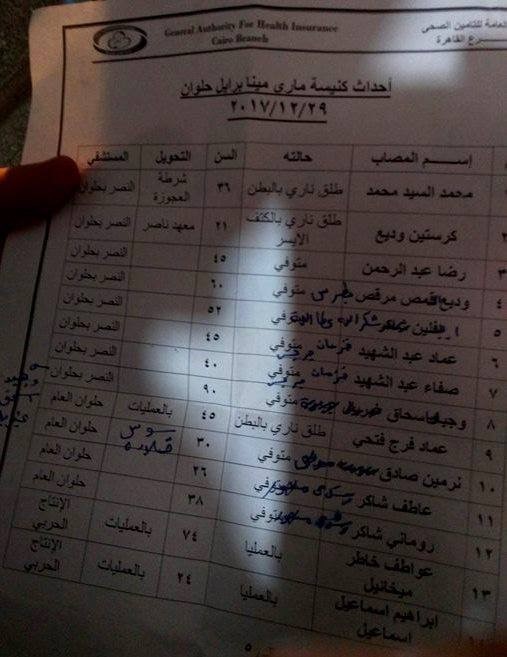 General Authority For Health Insurance
Cairo Branch
العامة للتامين الصحى
رع القاهرة
أحداث كنيسة ماري مينا برايل حلوان
٢٠١٧/١٢/٢٩
إســـم المصاب حالته السن التحويل المستشفي
محمد السيد محمد طلق ناري بالبطن ٣٦ شرطة العجوزة النصر بحلوان
٢ كرستين وديع طلق ناري بالكتف الايسر ٢١ معهد ناصر النصر بحلوان
٣ رضا عبد الرحمن متوفي ٤٥ النصر بحلوان
٤ وديع القمص مرقص متوفي ٦٠ النصر بحلوان
٥ ايفلين متوفي ٥٢ النصر بحلوان
٦ عماد عبد الشهيد متوفي ٤٥ النصر بحلوان
٧ صفاء عبد الشهيد متوفي ٤٠ النصر بحلوان
٨ اسحاق متوفي ٩٠ النصر بحلوان
٩ عماد فرج فتحي طلق ناري بالبطن ٤٥ بالعمليات حلوان العام
١٠ نرمين صادق متوفي ٣٠ حلوان العام
١١ عاطف شاكر متوفي ٢٦ حلوان العام
١٢ روماني شاكر متوفي ٣٨ حلوان العام
١٣ عواطف خاطر ميخائيل بالعمليا ٧٤ بالعمليات الإنتاج الحربي
ابراهيم اسماعيل اسماعيل بالعمليا ٢٤ بالعمليات الإنتاج الحربي